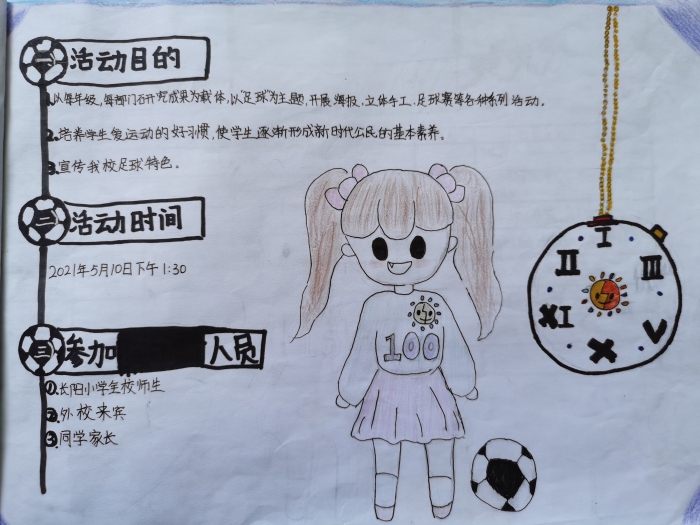 一 活动目的
1. 以每年级,每部门石开究成果为载体,以"足球"为主题,开展海报、立体手工、足球赛等各种系列活动。
2. 培养学生爱运动的好习惯,使学生逐渐形成新时代公民的基本素养。
3. 宣传我校足球特色。
二 活动时间
2021年5月10日下午1:30
三 参加 人员
①.长阳小学全校师生
②.外校来宾
③.同学家长
100
I
II
III
XI
V
X